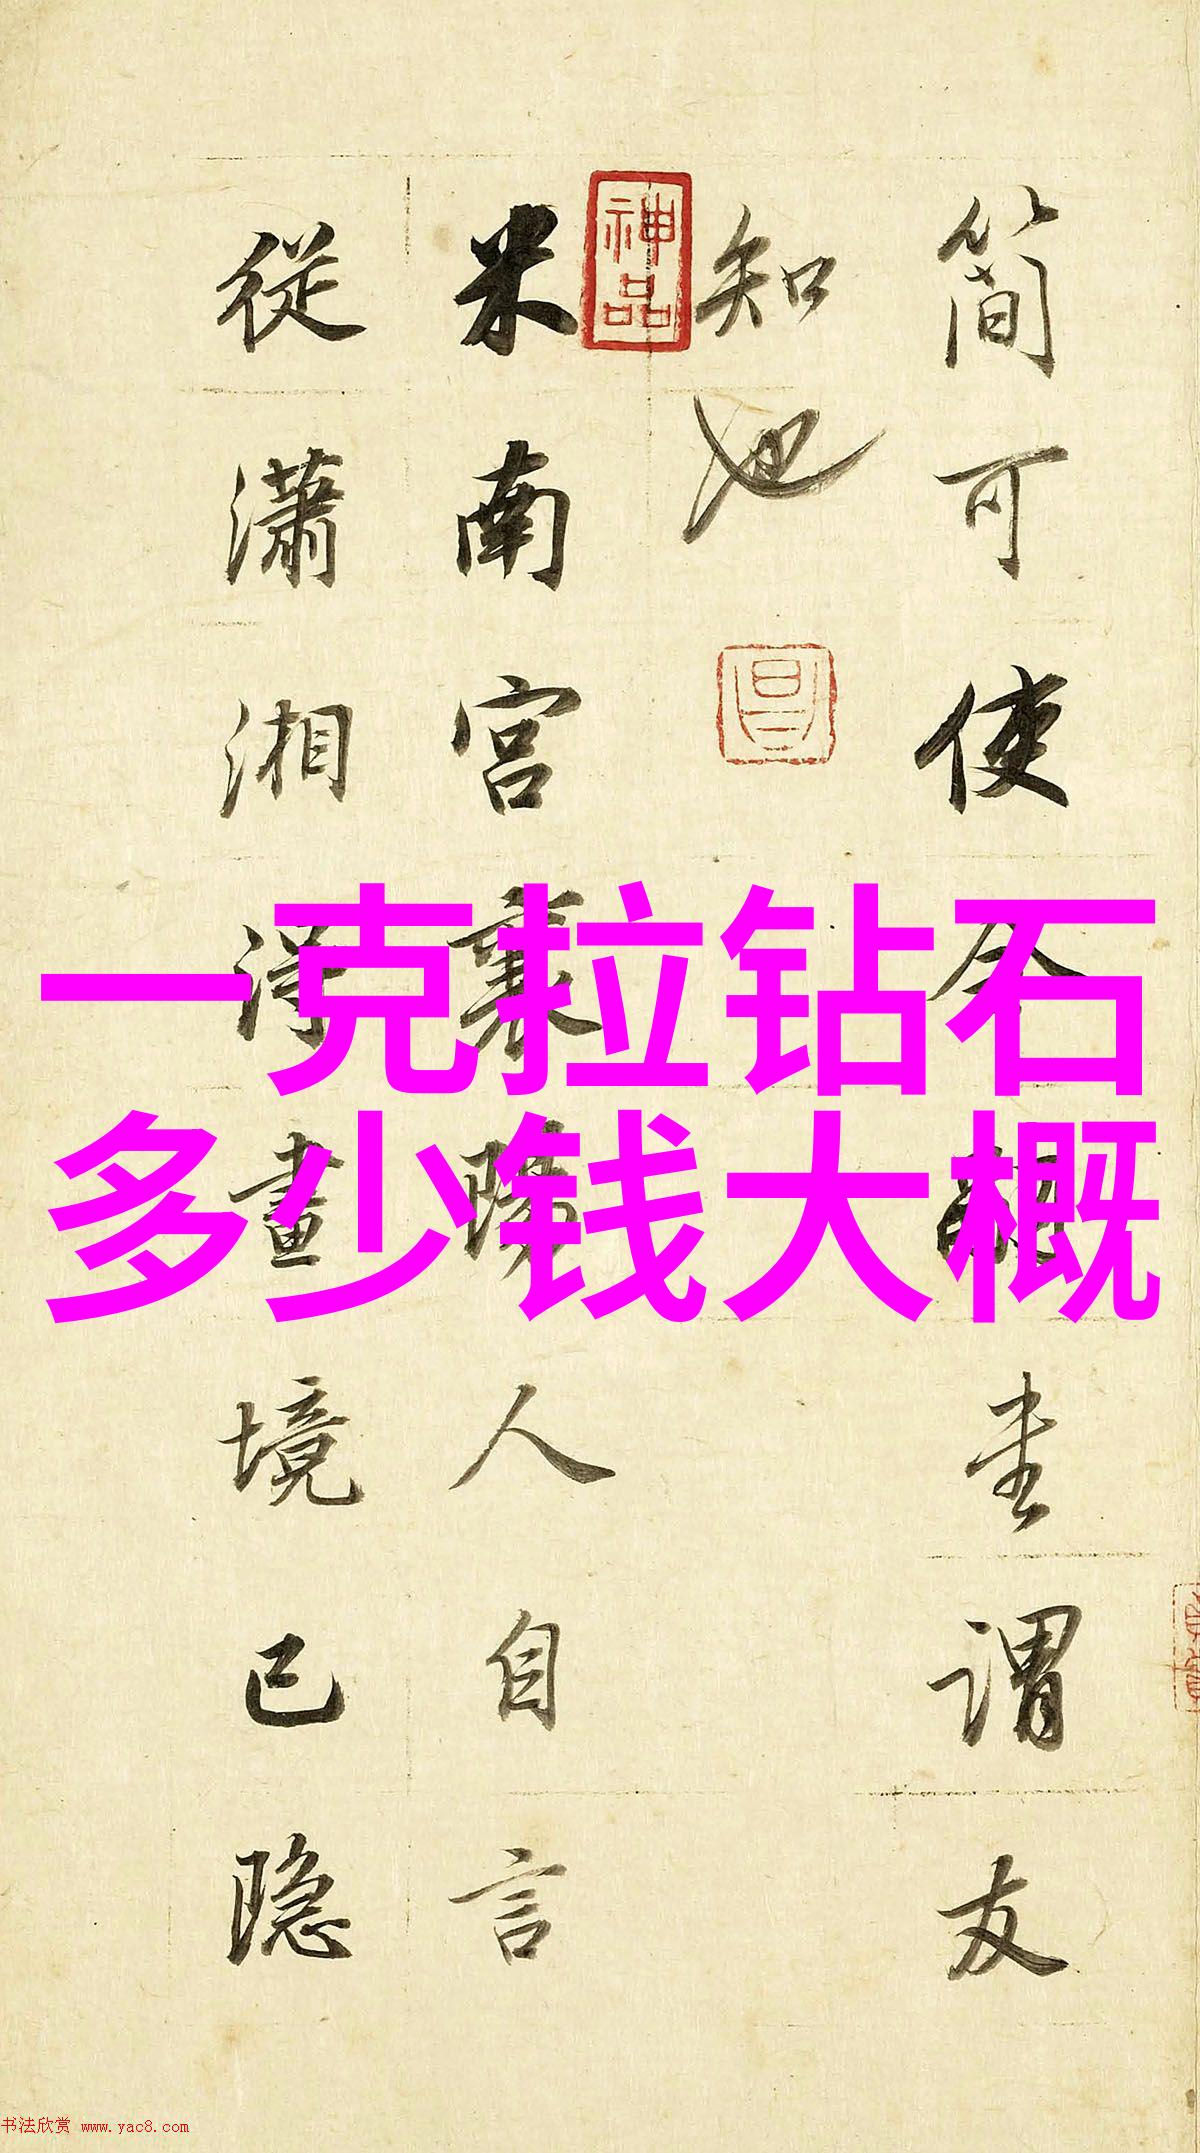 简可使令韻圭谓友
知也
神品
昌
米南宫襄陽人自言
從瀟湘得畫境已隐
一克拉钻石
多少钱大概
书法欣赏 www.yac8.com